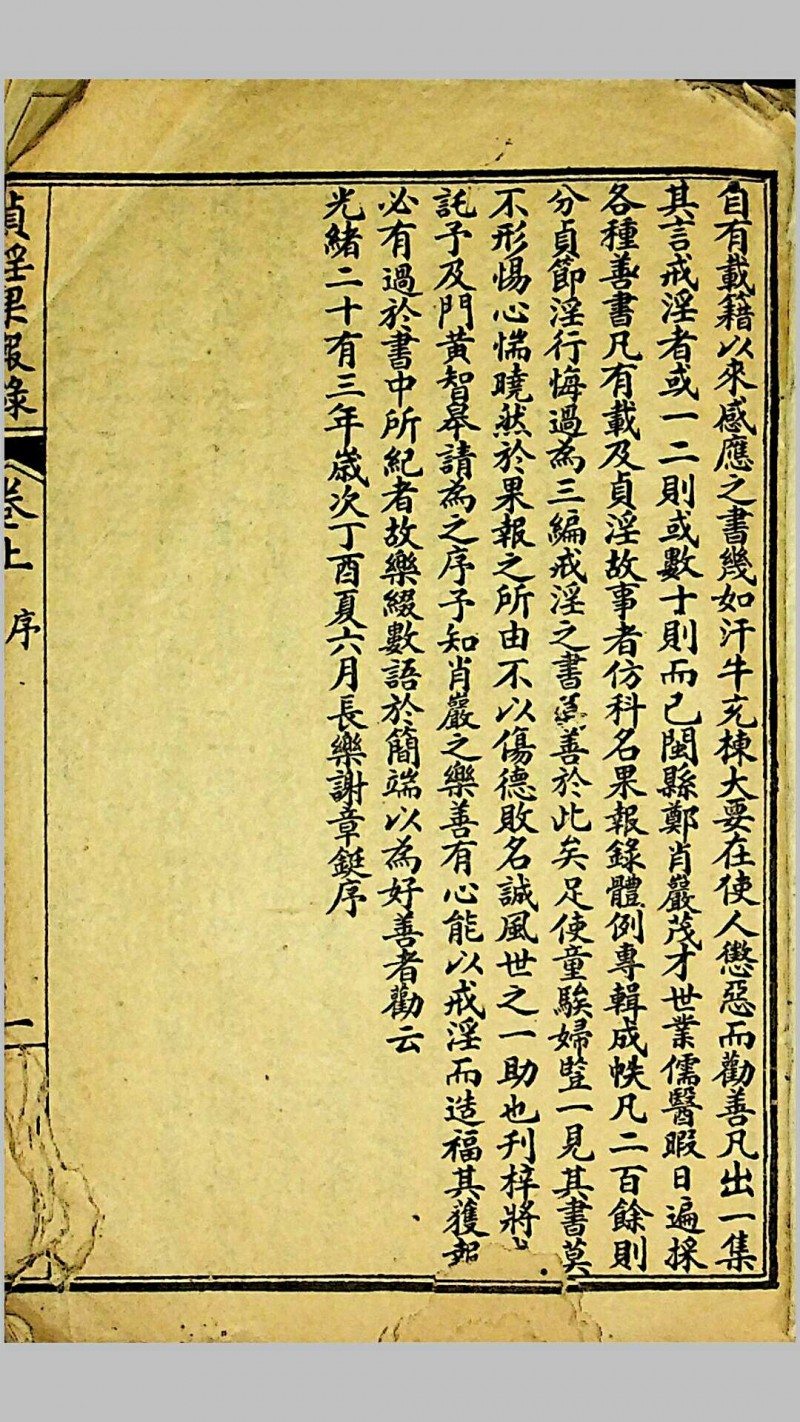 自有載籍以來感應之書幾如汗牛充棟大要在使人懲惡而勸善凡出一集
其言戒淫者或一二則或數十則而已閩縣鄭肖巖茂才世業儒醫暇日遍採
各種善書凡有載及貞淫故事者仿科名果報錄體例專輯成帙凡二百餘則
分貞節淫行悔過為三編戒淫之書善於此矣足使童騃婦豎一見其書莫
不形惕心惴曉然於果報之所由不以傷德敗名誠風世之一助也刊梓將
託予及門黃智皋請為之序予知肖巖之樂善有心能以戒淫而造福其獲報
必有過於書中所紀者故樂綴數語於簡端以為好善者勸云
光緒二十有三年歲次丁酉夏六月長樂謝章鋌序
貞淫果報錄
卷上
序
一